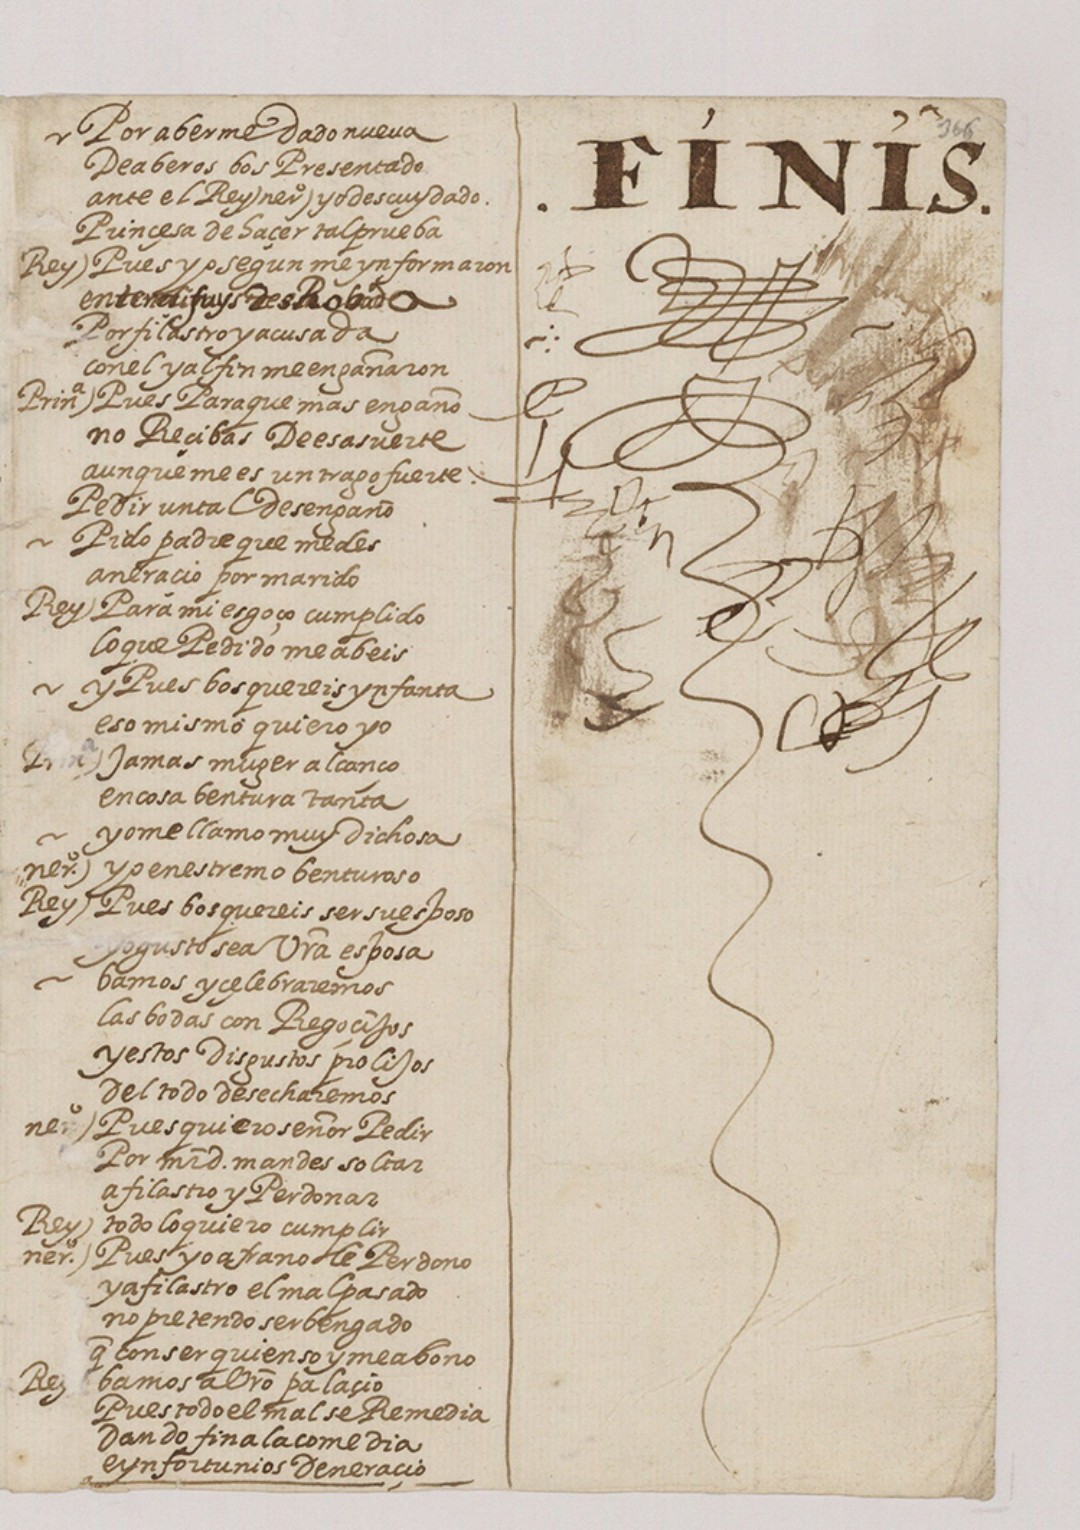 ~ Por aberme dado nueva
De aberos bos Presentado
ante el Rey) nerº) yo descuydado.
Princesa de haçer tal prueba
Rey) Pues yo segun me ynformaron
entendi fuys des Robada
Por filastro y acusada
con el y al fin me engañaron
Prinª) Pues Para que mas engaño
no Recibas De esa suerte
aunque me es un trago fuerte
Pedir un tal desengaño
~ Pido padre que me des
a neracio por marido
Rey) Para mi es goço cumplido
lo que Pedido me abeis
~ y Pues bos quereis ynfanta
eso mismo quiero yo
Prinª) Jamas muger alcanço
en cosa bentura tanta
~ yo me llamo muy Dichosa
nerº.) yo en estremo benturoso
Rey) Pues bos quereis ser su esposo
yo gusto sea Vrã esposa
~ bamos y çelebraremos
las bodas con Regoçijos
y estos Disgustos prolijos
del todo desecharemos
nerº) Pues quiero señor Pedir
Por mrd. mandes soltar
a filastro y Perdonar
Rey) todo lo quiero cumplir
nerº.) Pues yo a frano le Perdono
y a filastro el mal pasado
no pretendo ser bengado
q̃ con ser quien soy me abono
Rey bamos a Vrõ palaçio
Pues todo el mal se Remedia
Dando fin a la comedia
e ynfortunios De neraçio
366
. FINIS.